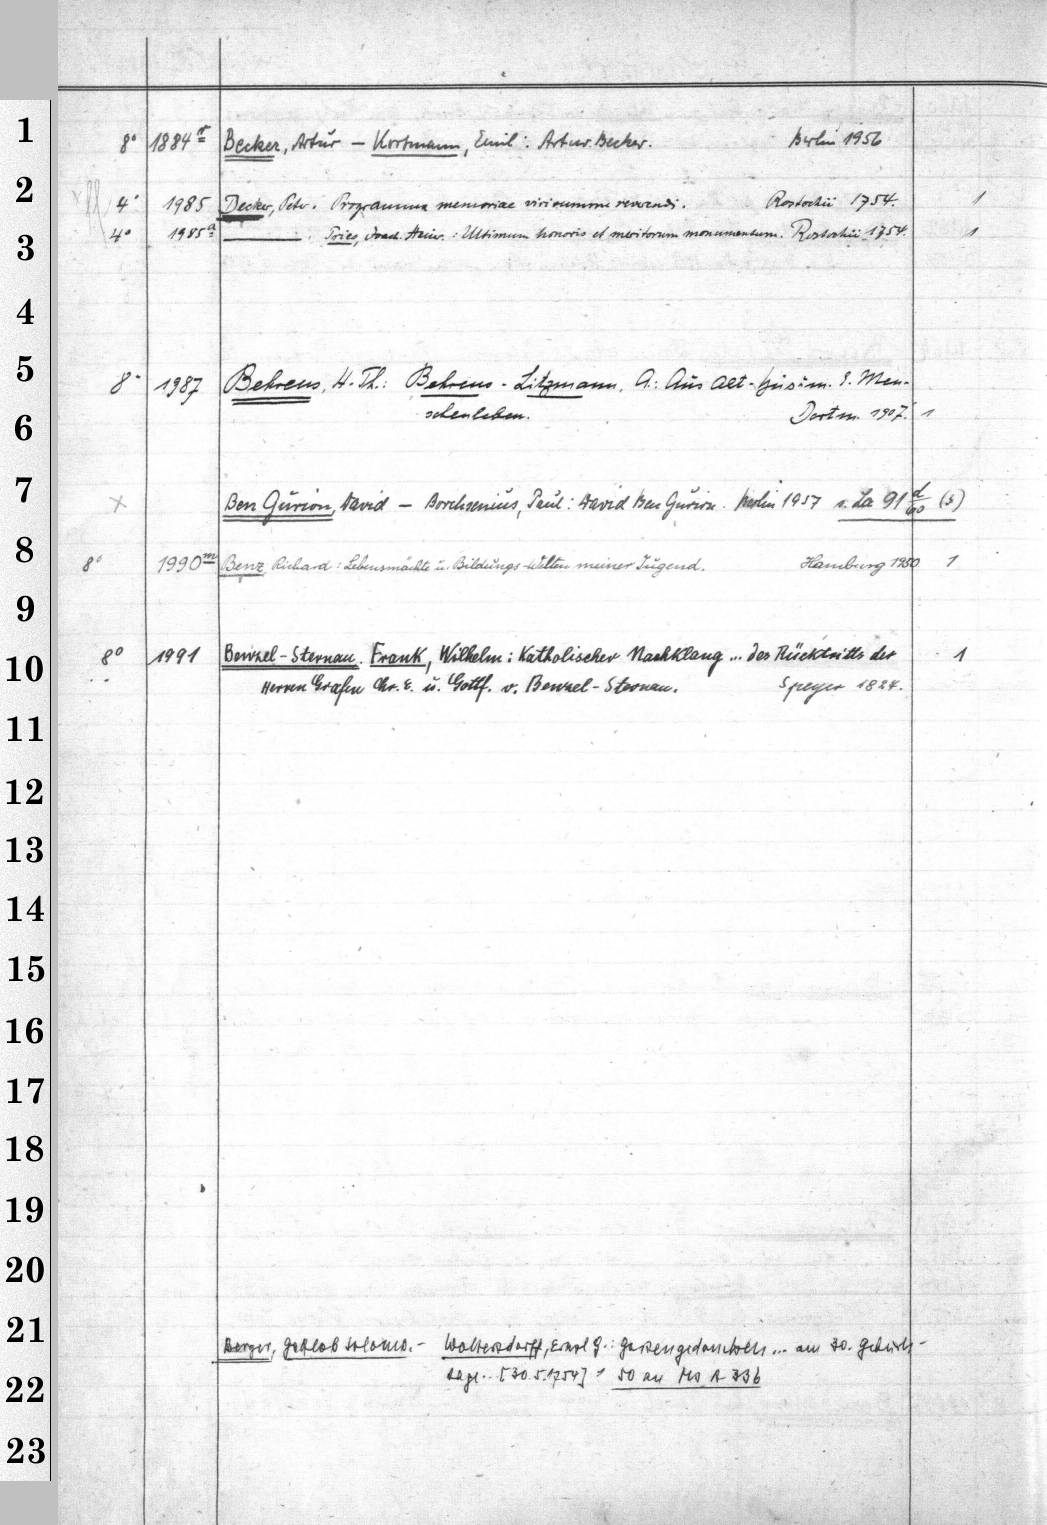 1
8° 1884 r Becker, Artur — Kortmann, Emil: Artur Becker. Berlin 1956
2
4° 1985 Becker, Petr. Programma memoriae viri summe reverendi. Rostochii 1754. 1
3
4° 1985 a ——— . Pries, Joach. Heinr.: Ultimum honoris et meritorum monumentum. Rostochii 1754. 1
4
5
8° 1987 Behrens, H. Th.: Behrens-Litzmann, A.: Aus alt- e. Men-
6
schenleben. Dortm. 1907. 1
7
× Ben Gurion, David — Borchsenius, Paul: David Ben Gurion. Berlin 1957 s. La 91 d/60 (5)
8
8° 1990 m Benz, Richard: Lebensmächte u. Bildungs-Welten meiner Jugend. Hamburg 1950 1
9
10
8° 1991 Benzel-Sternau. Frank, Wilhelm: Katholischer Nachklang ... des Rücktritts der 1
Herren Grafen Chr. E. u. Gottf. v. Benzel-Sternau. Speyer 1824.
11
12
13
14
15
16
17
18
19
20
21
Berger, Gottlob Salomo.- Woltersdorff, Ernst G.: ... am 30. Geburts-
22
tage .. [30.5.1754] 50 an Ms A 336
23